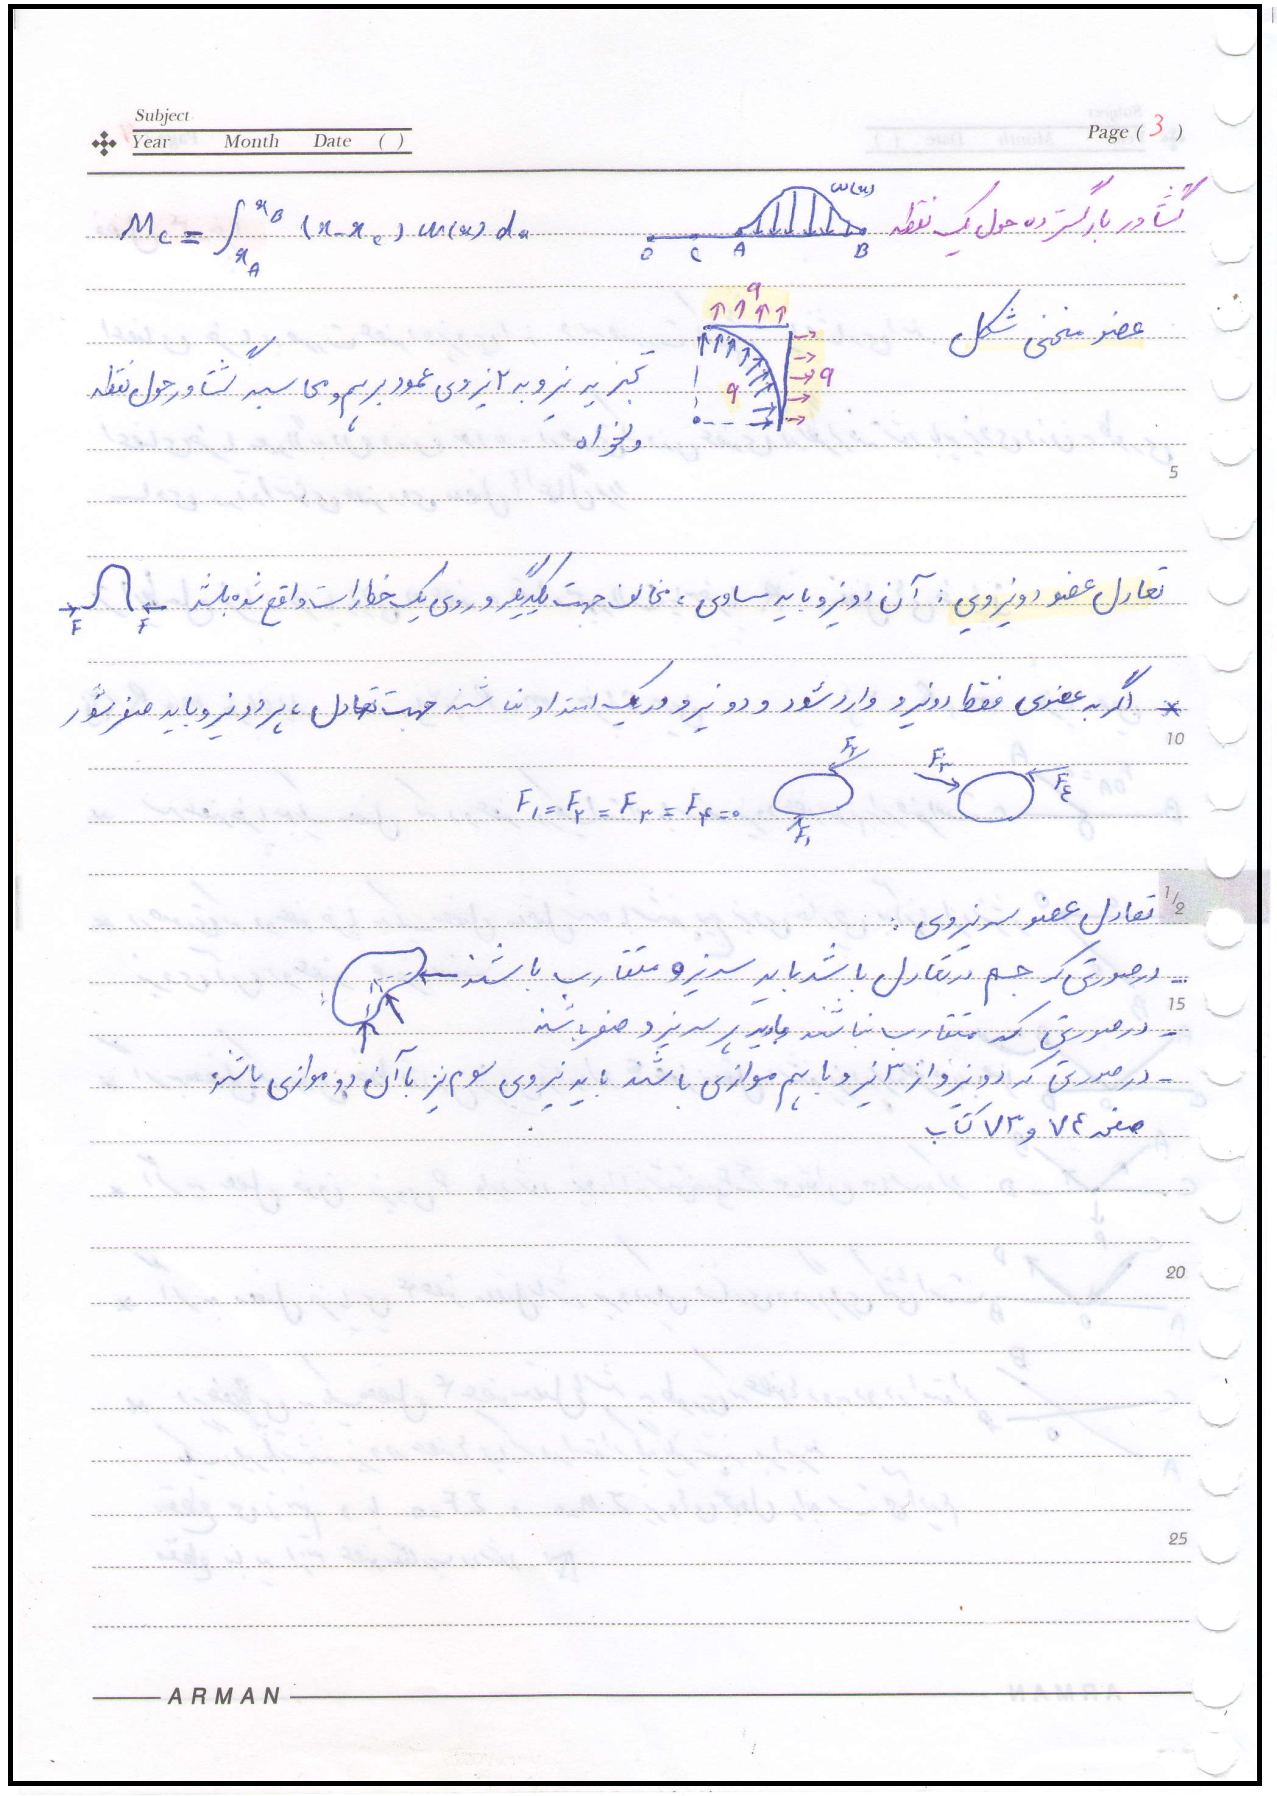 Subject
Year Month Date ( )
Page ( 3 )
گشتاور بار گسترده حول یک نقطه
w(x)
O C A B
M_C = ∫_{x_A}^{x_B} (x - x_C) w(x) dx
عضو منحنی شکل
q
q
q
تجزیه نیرو به ۲ نیروی عمود بر هم و محاسبه گشتاور حول نقطه
دلخواه
5
تعادل عضو دو نیرویی : آن دو نیرو باید مساوی ، مخالف جهت یکدیگر و روی یک خط راست واقع شده باشد
F F
* اگر به عضوی فقط دو نیرو وارد شود و دو نیرو در یک امتداد نباشند جهت تعادل ، هر دو نیرو باید صفر شود
10
F۱ = F۲ = F۳ = F۴ = ۰
F۲ F۱ F۳ F٤
1/2
تعادل عضو سه نیروی :
- در صورتی که جسم در تعادل باشد باید سه نیرو متقارب باشند
15
- در صورتی که متقارب نباشند باید هر سه نیرو صفر باشند
- در صورتی که دو نیرو از ۳ نیرو با هم موازی باشند باید نیروی سوم نیز با آن دو موازی باشد
صفحه ۷٤ و ۷۳ کتاب
20
25
ARMAN